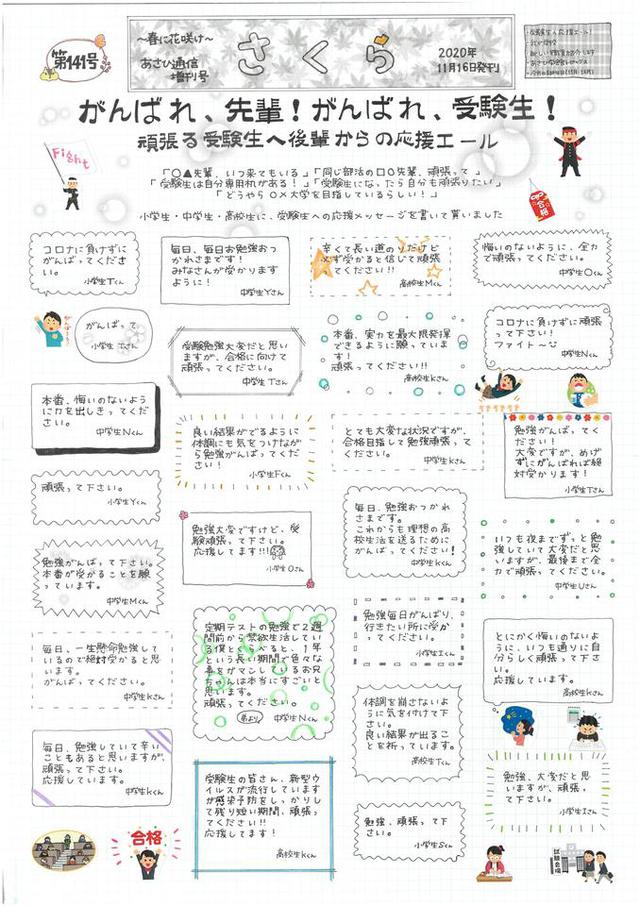 第141号
～春に花咲け～
あさひ通信
増刊号
さくら
2020年
11月16日発刊
がんばれ、先輩！がんばれ、受験生！
頑張る受験生へ後輩からの応援エール
Fight
「○▲先輩、いつ来てもいる」「同じ部活の□○先輩、頑張って」
「受験生は自分専用机がある！」「受験生になったら自分も頑張りたい」
「どうやら○×大学を目指しているらしい！」
合格
小学生・中学生・高校生に、受験生への応援メッセージを書いて貰いました
コロナに負けずに
がんばってくださ
い。
小学生Tくん
毎日、毎日お勉強おつ
かれさまです！
みなさんが受かります
ように！
中学生Yさん
辛くて長い道のりだけど
必ず受かると信じて頑張
ってください！！
高校生Mくん
悔いのないように、全力
で頑張ってください。
中学生Oくん
がんばって
小学生Tさん
受験勉強大変だと思い
ますが、合格に向けて
頑張ってください。
中学生Tさん
本番、実力を最大限発揮
できるように願っていま
す！
頑張ってください！！
高校生Kさん
コロナに負けずに頑張
って下さい！
ファイト～
中学生Nくん
本番、悔いのないよう
に力を出しきってくだ
さい。
中学生Nくん
良い結果がでるように
体調にも気をつけながら
勉強がんばってくださ
い！
小学生Fくん
とても大変な状況ですが、
合格目指して勉強頑張って
ください。
中学生Kさん
勉強がんばってく
ださい！
大変ですが、めげ
ずにがんばれば絶
対受かります！
小学生Tさん
頑張って下さい。
小学生Yくん
勉強大変ですけど、受
験頑張って下さい。
応援してます!!!
小学生Oさん
毎日、勉強おつかれ
さまです。
これからも理想の高
校生活を送るために
がんばってください！
中学生Kくん
いつも夜までずっと勉
強していて大変だと思
いますが、最後まで全
力で頑張ってください。
中学生Uさん
勉強がんばって下さい。
本番が受かることを願
っています。
中学生Mくん
毎日、一生懸命勉強して
いるので絶対受かると思
います。
がんばってください。
中学生Kさん
定期テストの勉強で2週
間前から禁欲生活してい
る僕とくらべると、1年
という長い期間で色々な
事をガマンしているお兄
ちゃんは本当にすごいと
思います。
頑張ってください。
弟より
中学生Nくん
勉強毎日がんばり、
行きたい所に受か
ってください。
小学生Iくん
とにかく悔いのないよ
うに、いつも通りに自
分らしく頑張って下さ
い。
応援しています。
高校生Kさん
体調を崩さないよ
うに気を付けて下
さい。
良い結果が出るこ
とを祈っています。
高校生Tくん
毎日、勉強していて辛い
こともあると思いますが、
頑張って下さい。
応援しています。
中学生Kくん
受験生の皆さん、新型ウ
イルスが流行しています
が感染予防をしっかりし
て残り短い期間、頑張っ
てください!!
応援してます！
高校生Kくん
勉強、大変だと思
いますが、頑張っ
て下さい。
小学生Iさん
勉強、頑張って下
さい。
小学生Sくん
合格
試験会場